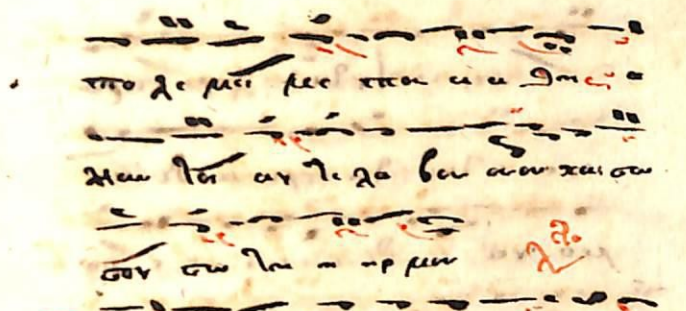 πο λε μει με πα α α θη α
λλαυ τος αν τι λα βου ουου και σω
σον σω τη η ηρ μου